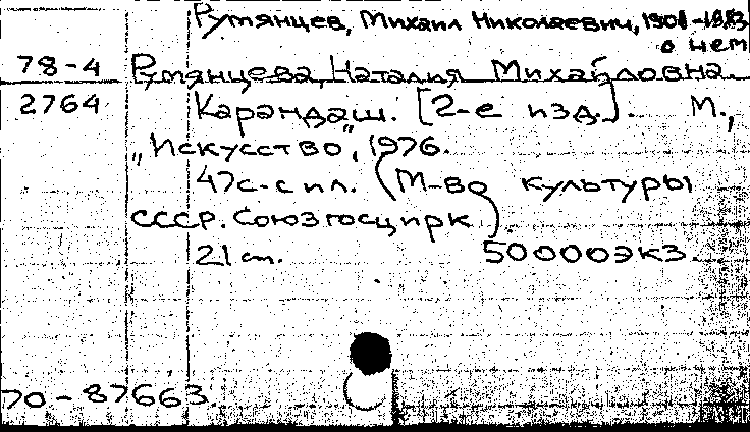 Румянцев, Михаил Николаевич, 1901-1983
о нем
78-4 Румянцева, Наталия Михайловна.
2764 Карандаш. [2-е изд.]. М.,
"Искусство", 1976.
47с. с ил. (М-во культуры
СССР. Союзгосцирк).
21 см. 50000экз.
70-87663.